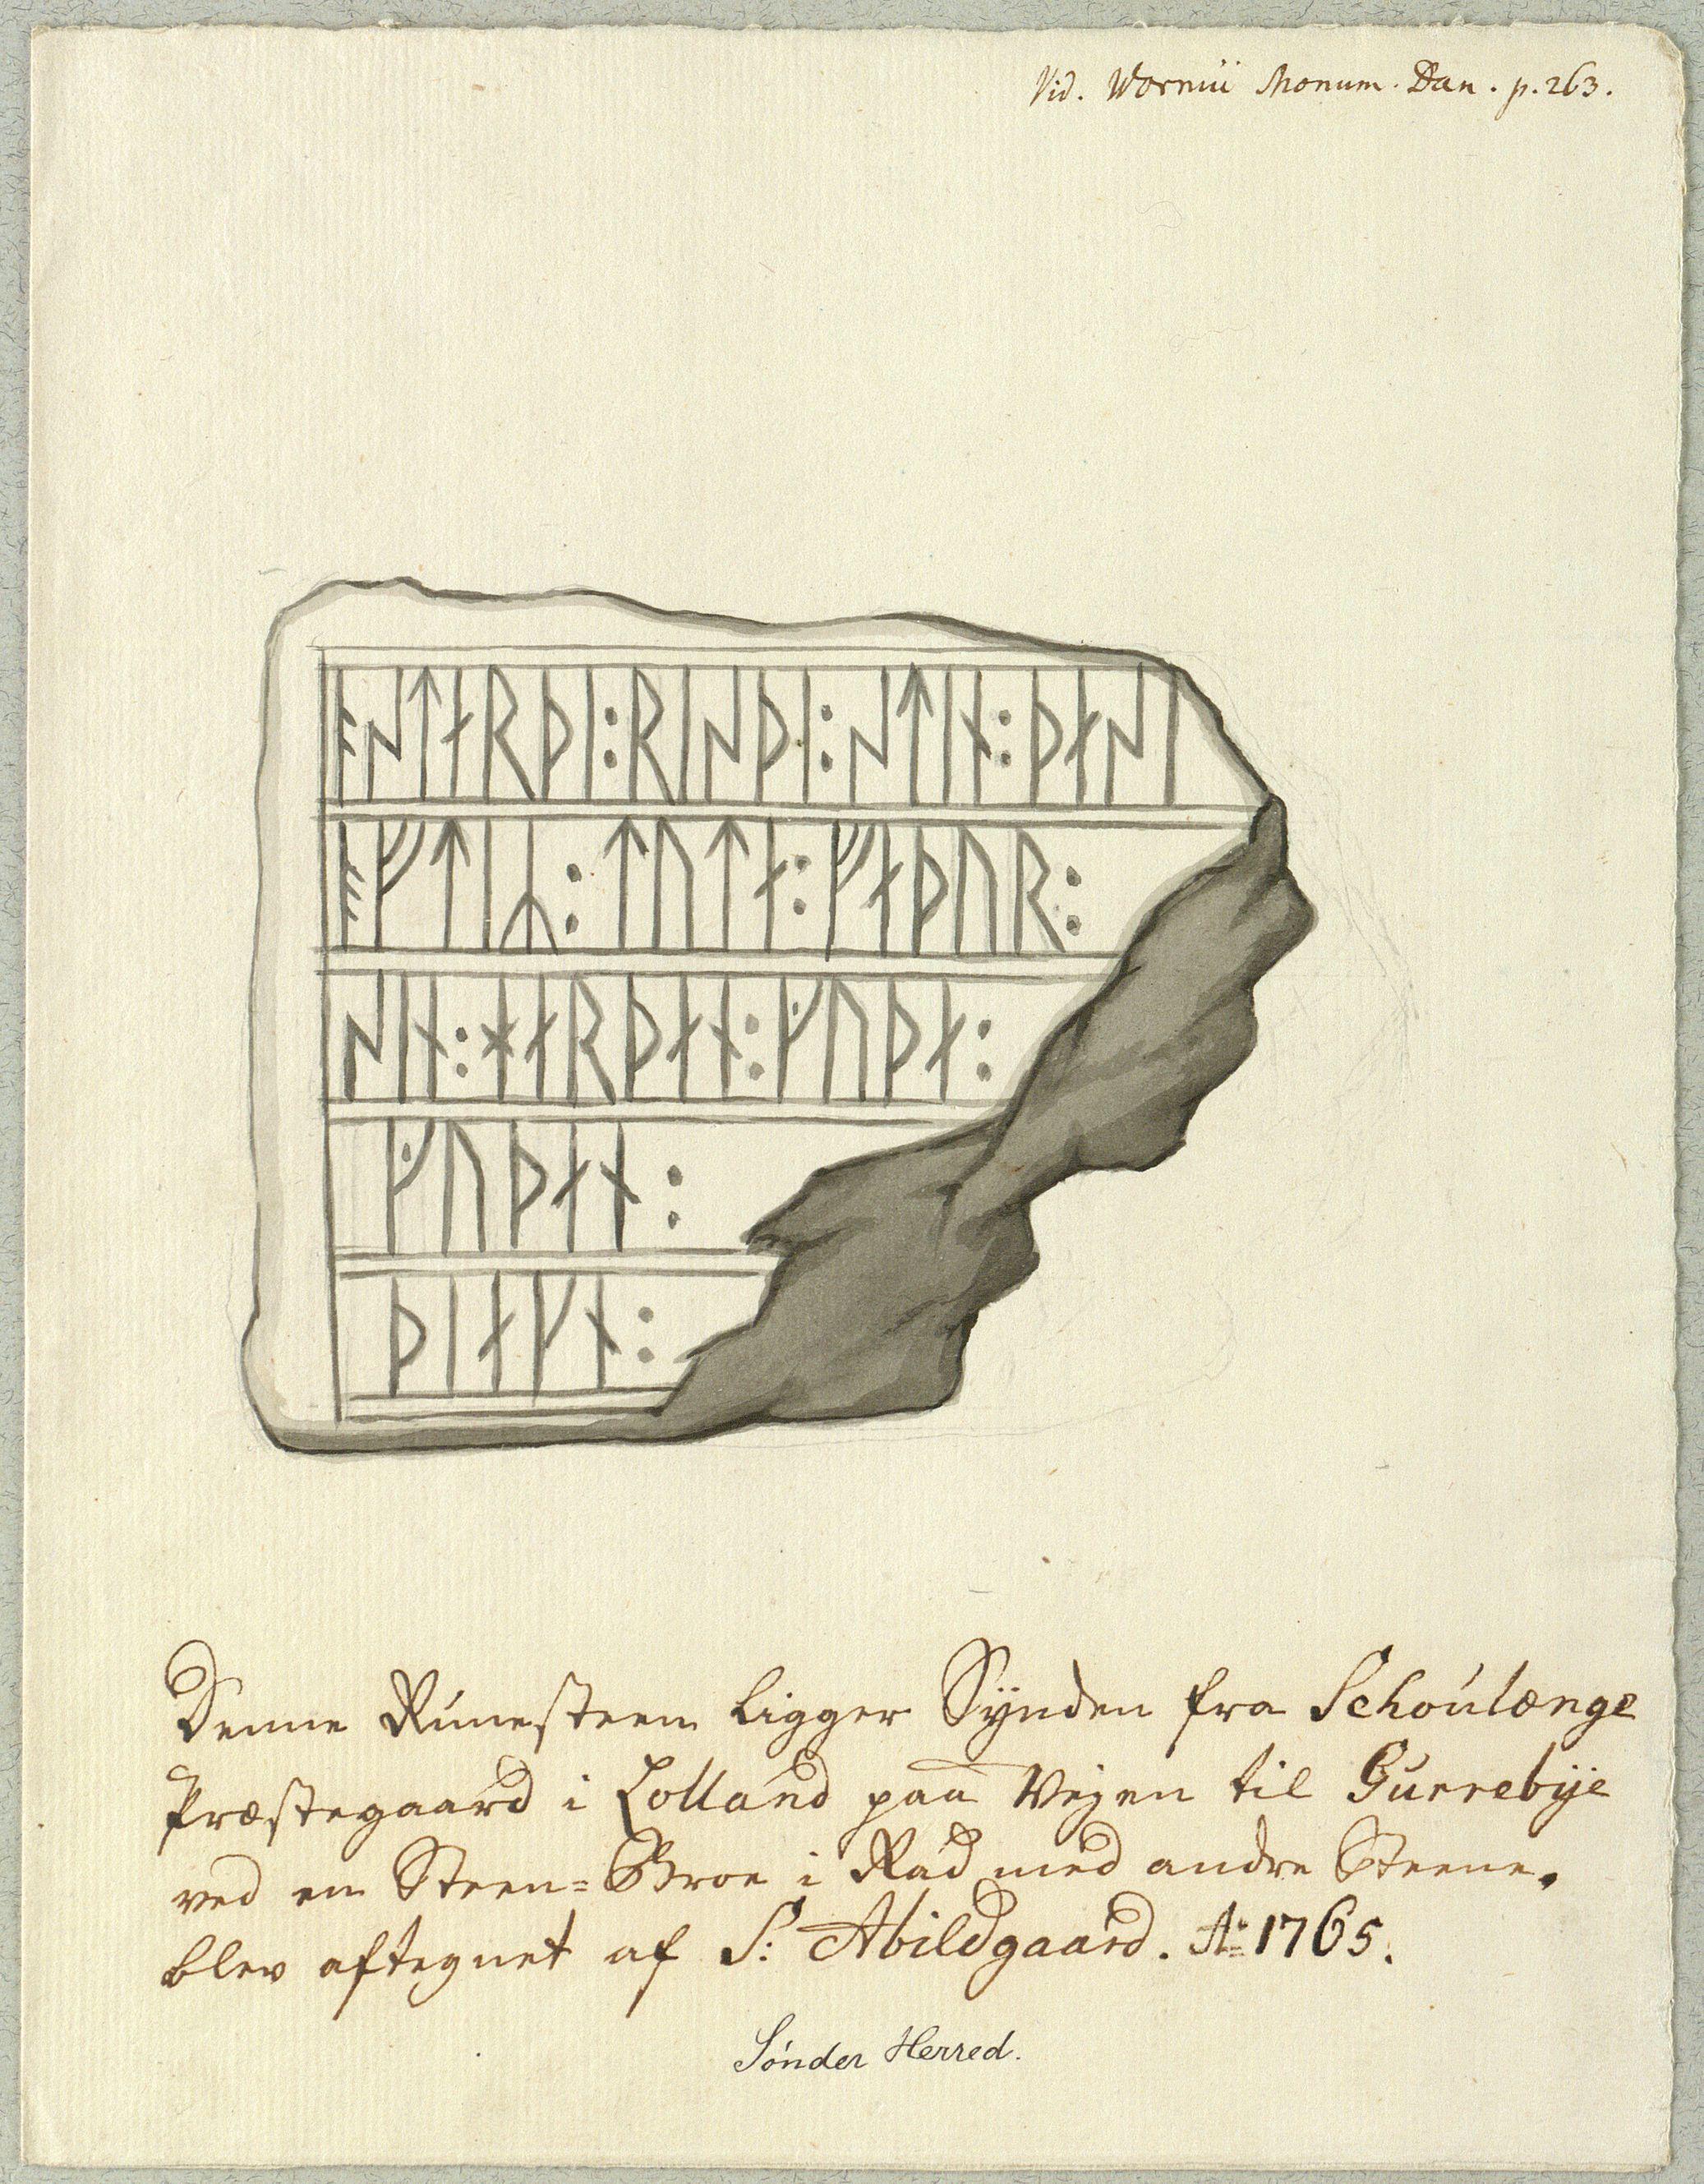 Vid. Wormii Monum. Dan. p. 263.
ᚬᛋᛏᛅᚱᚦᛁ:ᚱᛁᛋᚦᛁ:ᛋᛏᛁᚾ:ᚦᛅᛋᛁ
ᚬᚠᛏᛁᛦ:ᛏᚢᛏᛅ:ᚠᛅᚦᚢᚱ:
ᛋᛁᚾ:ᚼᛅᚱᚦᛅᚾ:ᚵᚢᚦᛅ:
ᚵᚢᚦᛅᚾ:
ᚦᛁᛅᚴᚾ:
Denne Runesteen ligger Synden fra Schoulænge
Præstegaard i Lolland paa Vejen til Gurrebÿe
ved en Steen=Broe i Rad med andre Steene.
blev aftegnet af S: Abildgaard. Aº 1765.
Sönder Herred.